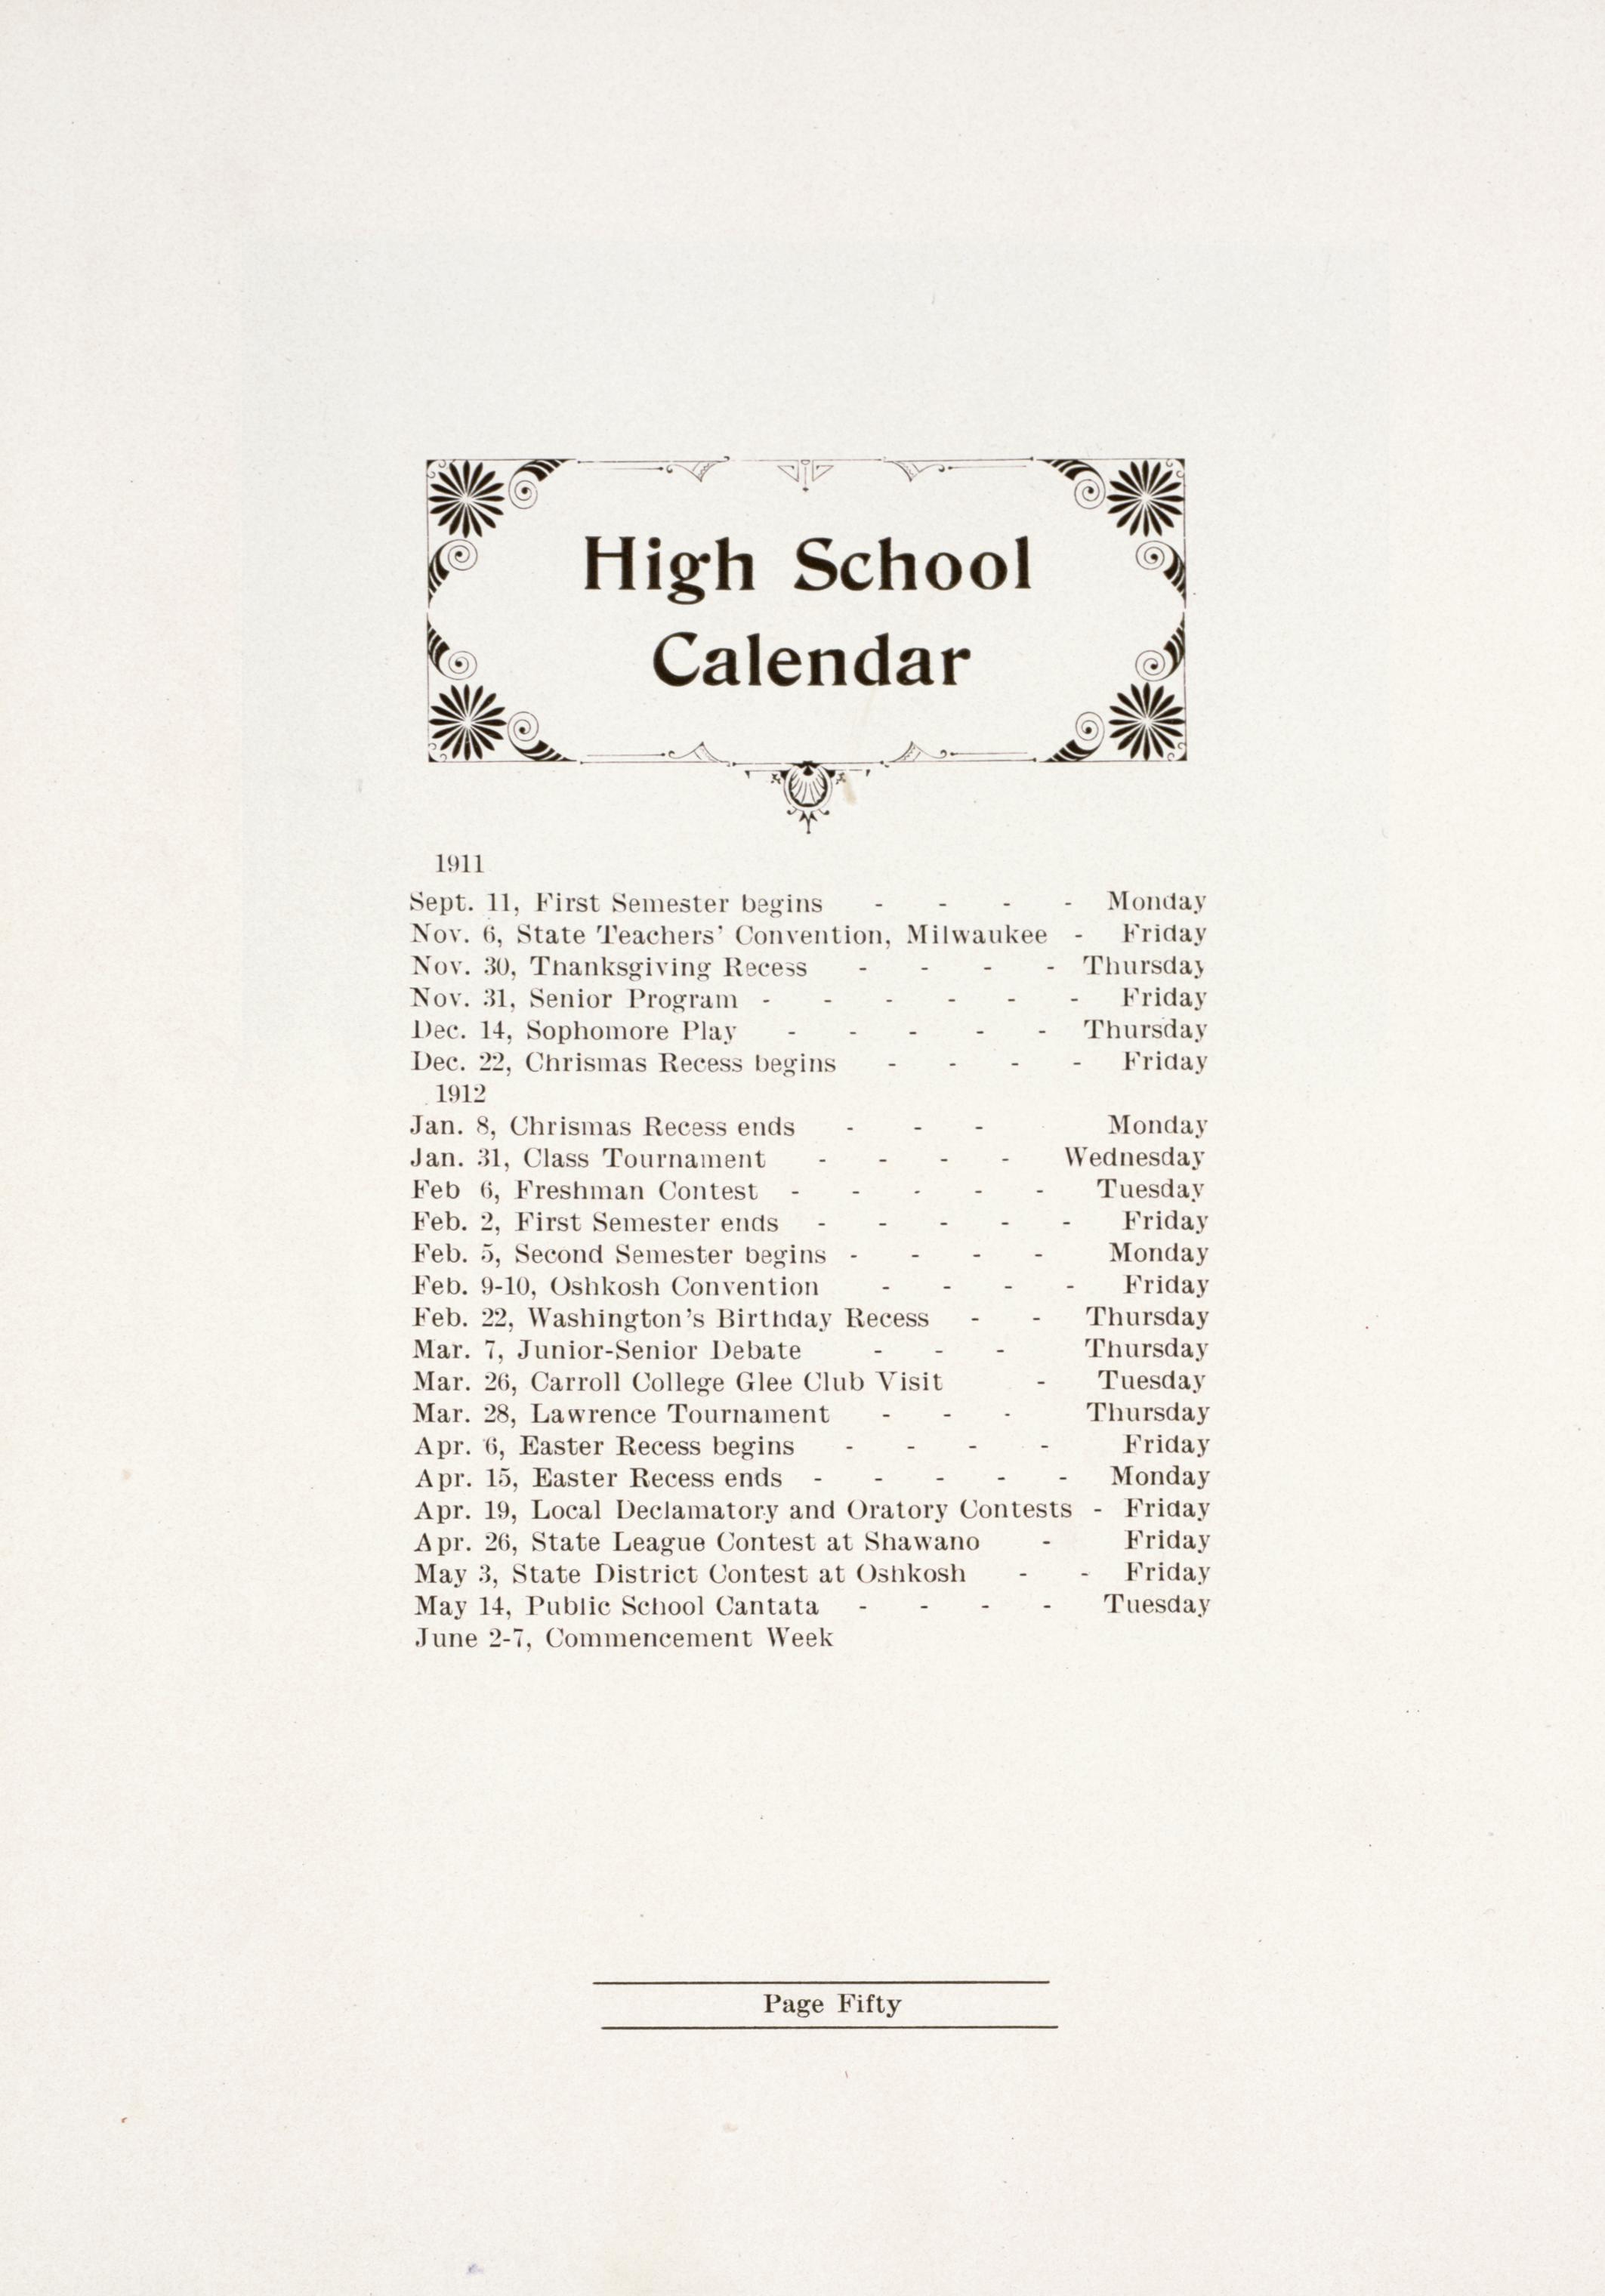 High School
Calendar
1911
Sept. 11, First Semester begins - - - - Monday
Nov. 6, State Teachers' Convention, Milwaukee - Friday
Nov. 30, Thanksgiving Recess - - - - Thursday
Nov. 31, Senior Program - - - - - - Friday
Dec. 14, Sophomore Play - - - - - Thursday
Dec. 22, Chrismas Recess begins - - - - Friday
1912
Jan. 8, Chrismas Recess ends - - - Monday
Jan. 31, Class Tournament - - - - Wednesday
Feb 6, Freshman Contest - - - - - Tuesday
Feb. 2, First Semester ends - - - - - Friday
Feb. 5, Second Semester begins - - - - Monday
Feb. 9-10, Oshkosh Convention - - - - Friday
Feb. 22, Washington's Birthday Recess - - Thursday
Mar. 7, Junior-Senior Debate - - - Thursday
Mar. 26, Carroll College Glee Club Visit - Tuesday
Mar. 28, Lawrence Tournament - - - Thursday
Apr. 6, Easter Recess begins - - - - Friday
Apr. 15, Easter Recess ends - - - - - Monday
Apr. 19, Local Declamatory and Oratory Contests - Friday
Apr. 26, State League Contest at Shawano - Friday
May 3, State District Contest at Oshkosh - - Friday
May 14, Public School Cantata - - - - Tuesday
June 2-7, Commencement Week
Page Fifty